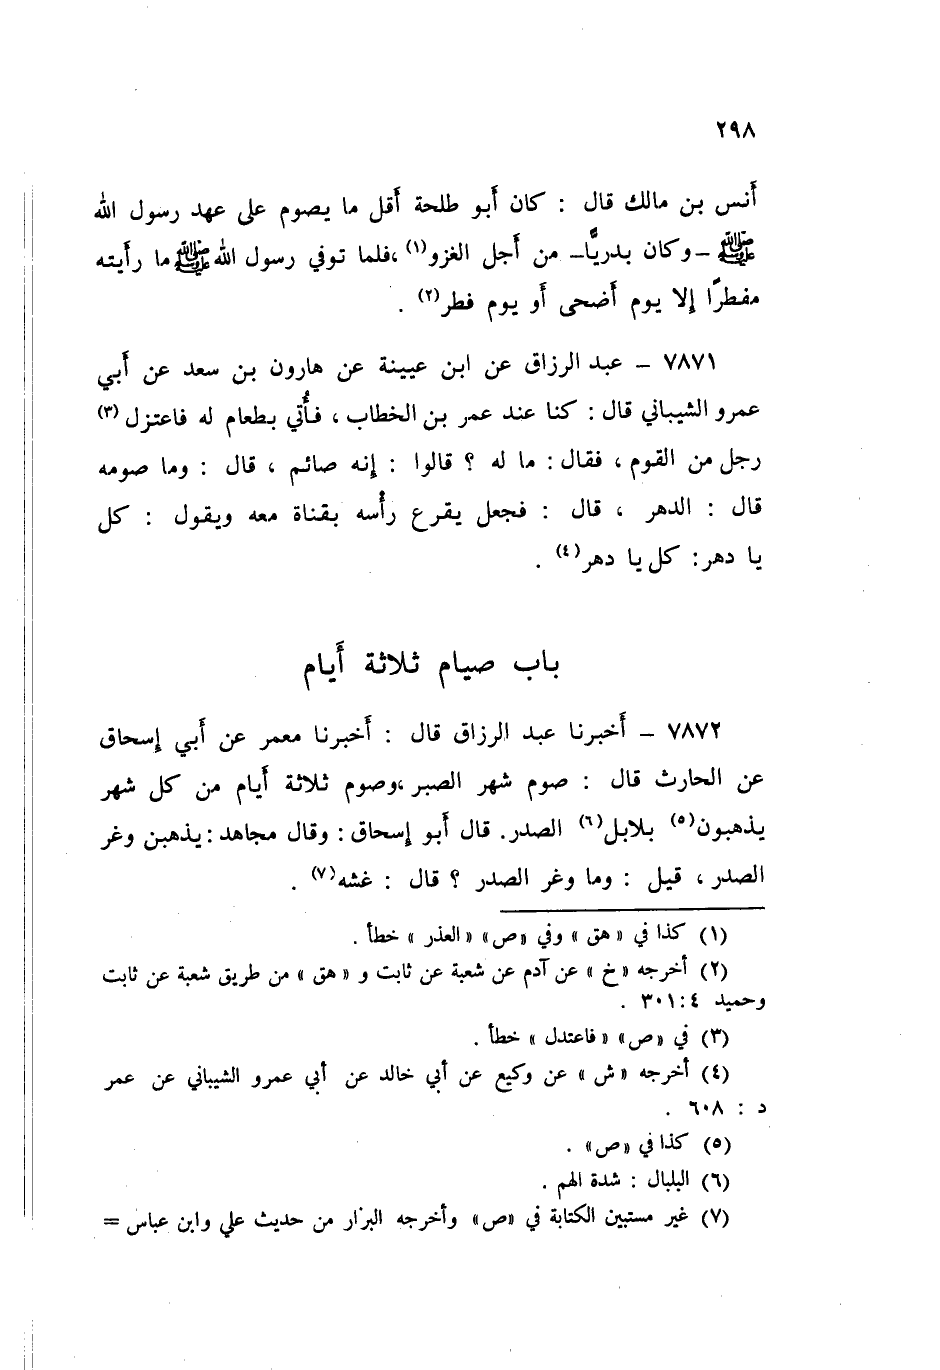 ٢٩٨
أَنس بن مالك قال : كان أَبو طلحة أَقل ما يصوم على عهد رسول الله
ﷺ -وكان بدريًّا- من أَجل الغزو(١) ،فلما توفي رسول الله ﷺ ما رأَيته
مفطرًا إلا يوم أَضحى أَو يوم فطر(٢) .
٧٨٧١ - عبد الرزاق عن ابن عيينة عن هارون بن سعد عن أَبي
عمرو الشيباني قال : كنا عند عمر بن الخطاب ، فأُتي بطعام له فاعتزل(٣)
رجل من القوم ، فقال : ما له ؟ قالوا : إنه صائم ، قال : وما صومه
قال : الدهر ، قال : فجعل يقرع رأْسه بقناة معه ويقول : كل
يا دهر : كل يا دهر(٤) .
باب صيام ثلاثة أَيام
٧٨٧٢ - أَخبرنا عبد الرزاق قال : أَخبرنا معمر عن أَبي إسحاق
عن الحارث قال : صوم شهر الصبر ،وصوم ثلاثة أَيام من كل شهر
يذهبون(٥) بلابل(٦) الصدر. قال أَبو إسحاق : وقال مجاهد : يذهبن وغر
الصدر ، قيل : وما وغر الصدر ؟ قال : غشه(٧) .
(١) كذا في « هق » وفي «ص» « العذر » خطأ .
(٢) أخرجه « خ » عن آدم عن شعبة عن ثابت و « هق » من طريق شعبة عن ثابت
وحميد ٤ : ٣٠١ .
(٣) في «ص» « فاعتدل » خطأ .
(٤) أخرجه « ش » عن وكيع عن أبي خالد عن أبي عمرو الشيباني عن عمر
د : ٦٠٨ .
(٥) كذا في «ص» .
(٦) البلبال : شدة الهم .
(٧) غير مستبين الكتابة في «ص» وأخرجه البزار من حديث علي وابن عباس =